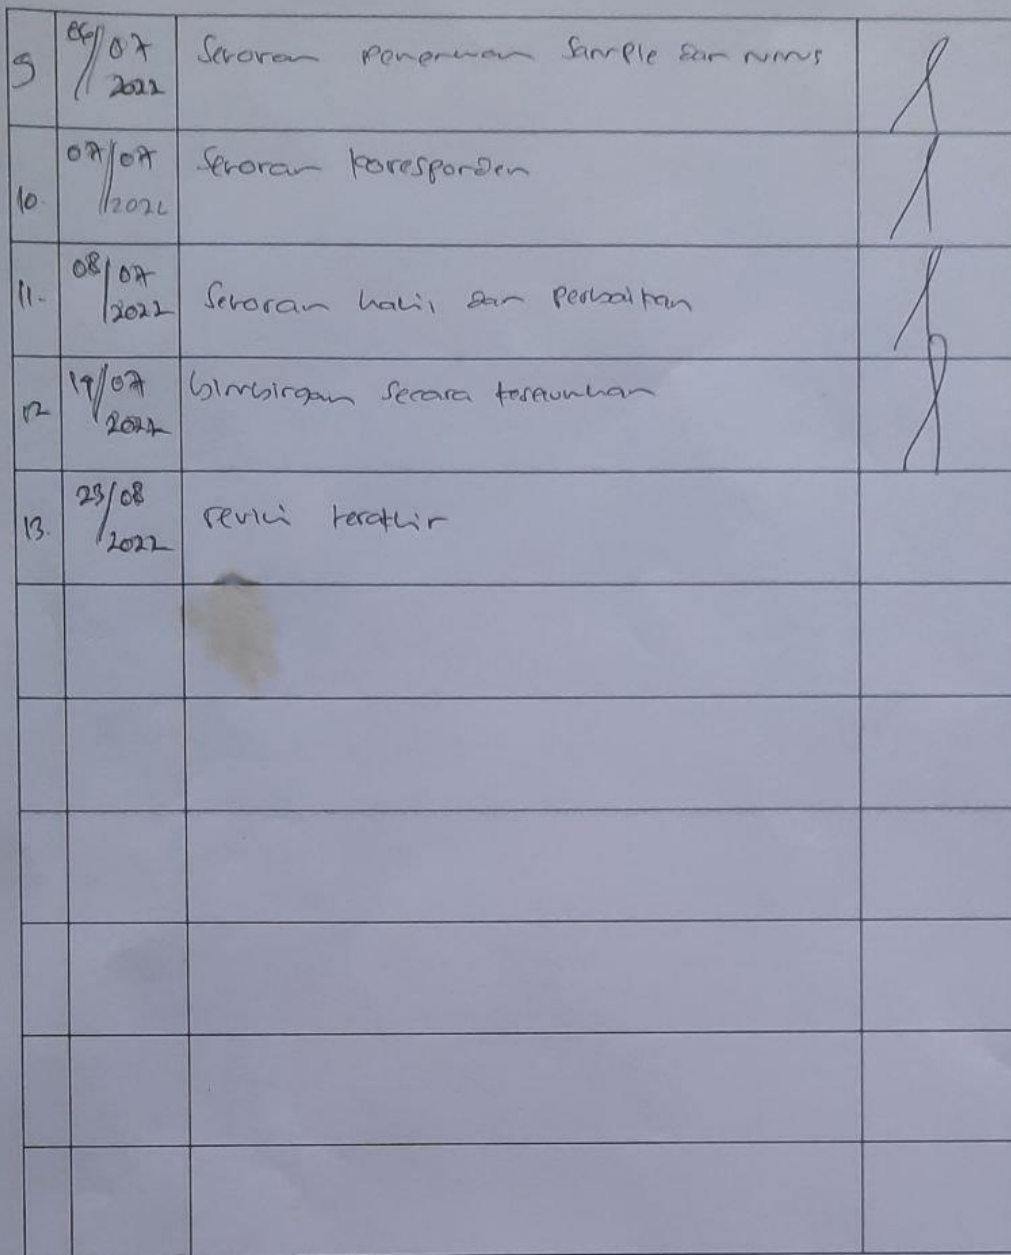 9 06/07 2022 Setoran penentuan sample dan rumus
10. 07/07 2022 Setoran koresponden
11. 08/07 2022 Setoran hasil dan perbaikan
12 19/07 2022 bimbingan secara keseluruhan
13. 23/08 2022 revisi terakhir